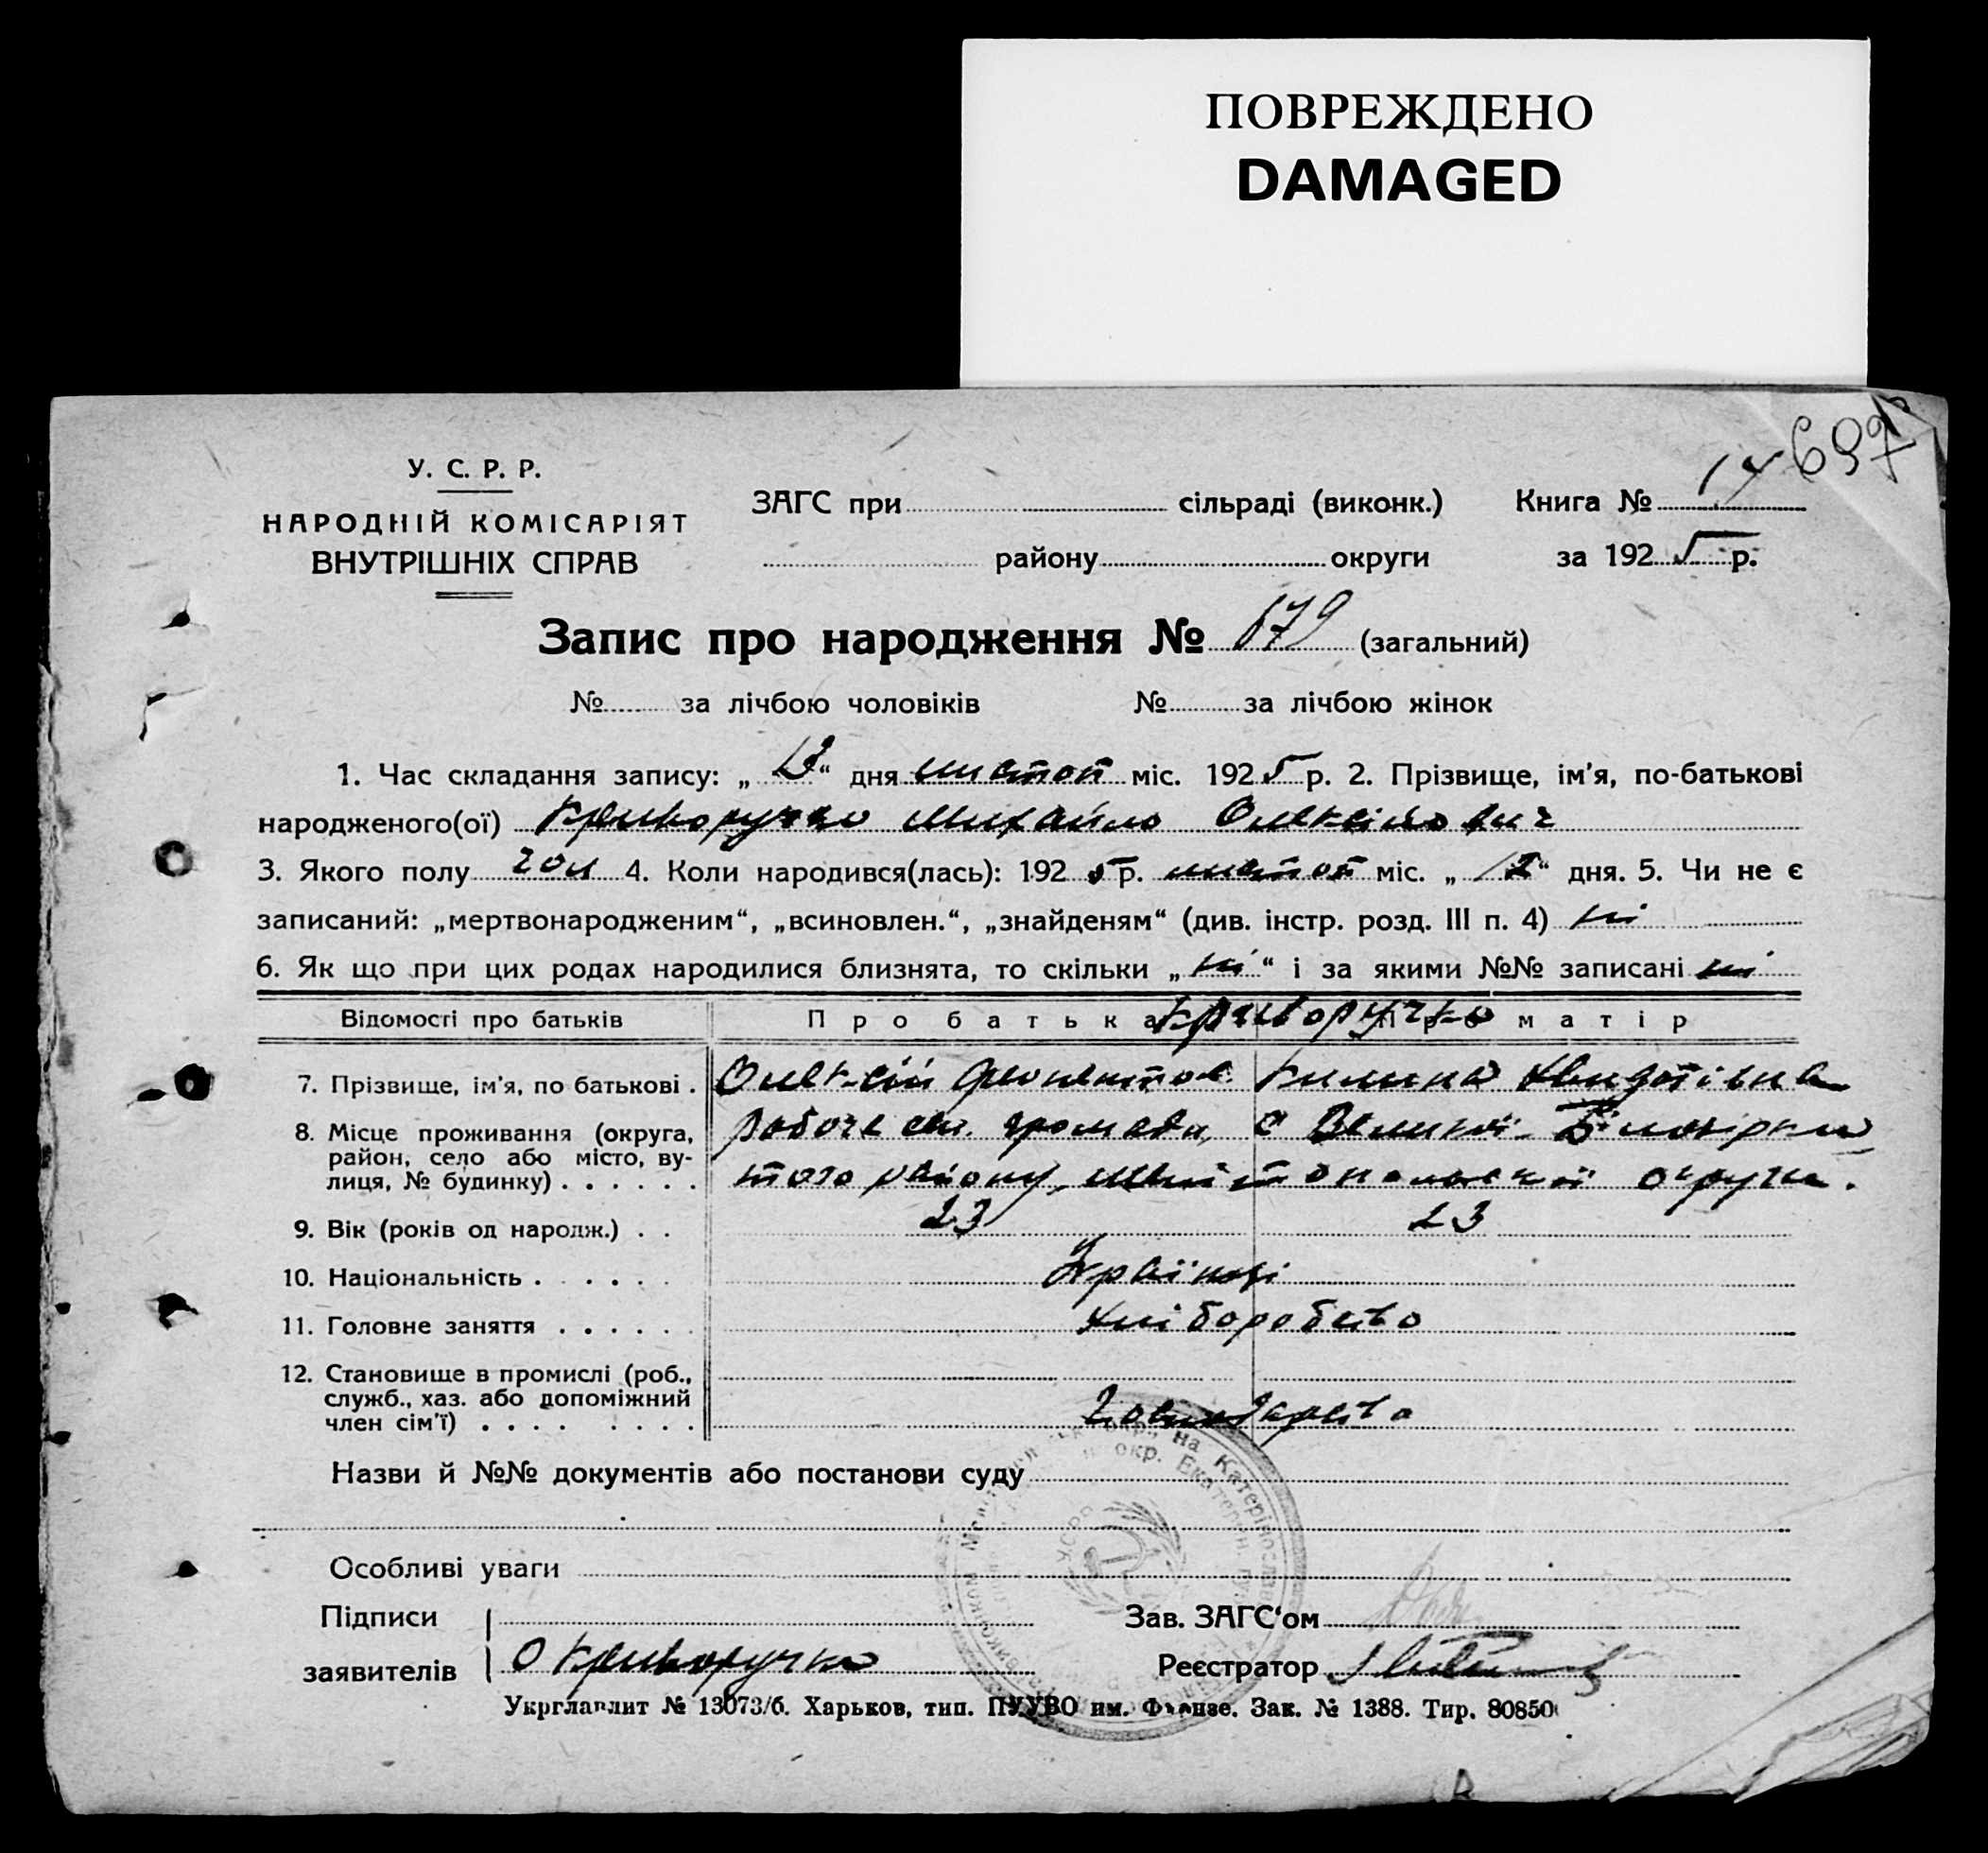 ПОВРЕЖДЕНО
DAMAGED
697
У. С. Р. Р.
НАРОДНІЙ КОМІСАРІЯТ
ВНУТРІШНІХ СПРАВ
ЗАГС при сільраді (виконк.) Книга № 17
району округи за 1925 р.
Запис про народження № 679 (загальний)
№ за лічбою чоловіків № за лічбою жінок
1. Час складання запису: „13“ дня листоп міс. 1925 р. 2. Прізвище, ім'я, по-батькові
народженого(ої) Криворучко Михайло Олексійович
3. Якого полу чол 4. Коли народився(лась): 1925 р. листоп міс. „12“ дня. 5. Чи не є
записаний: „мертвонародженим“, „всиновлен.“, „знайденям“ (див. інстр. розд. III п. 4) ні
6. Як що при цих родах народилися близнята, то скільки „ні“ і за якими №№ записані ні
Відомості про батьків Про батька Криворучко Про матір
7. Прізвище, ім'я, по батькові . Олексій Килина
8. Місце проживання (округа, район, село або місто, вулиця, № будинку) . . . . . . громади, с Великої Білозірки
того району, Мелітопольської округи.
9. Вік (років од народж.) . . 23 23
10. Національність . . . . . . Українці
11. Головне заняття . . . . . . хліборобство
12. Становище в промислі (роб.,
служб., хаз. або допоміжний
член сім'ї) . . . . . . . .
Назви й №№ документів або постанови суду
Особливі уваги
Підписи Зав. ЗАГС'ом
заявителів О Криворучко Реєстратор
Укрглавлит № 13073/б. Харьков, тип. ПУУВО им. Фрунзе. Зак. № 1388. Тир. 80850